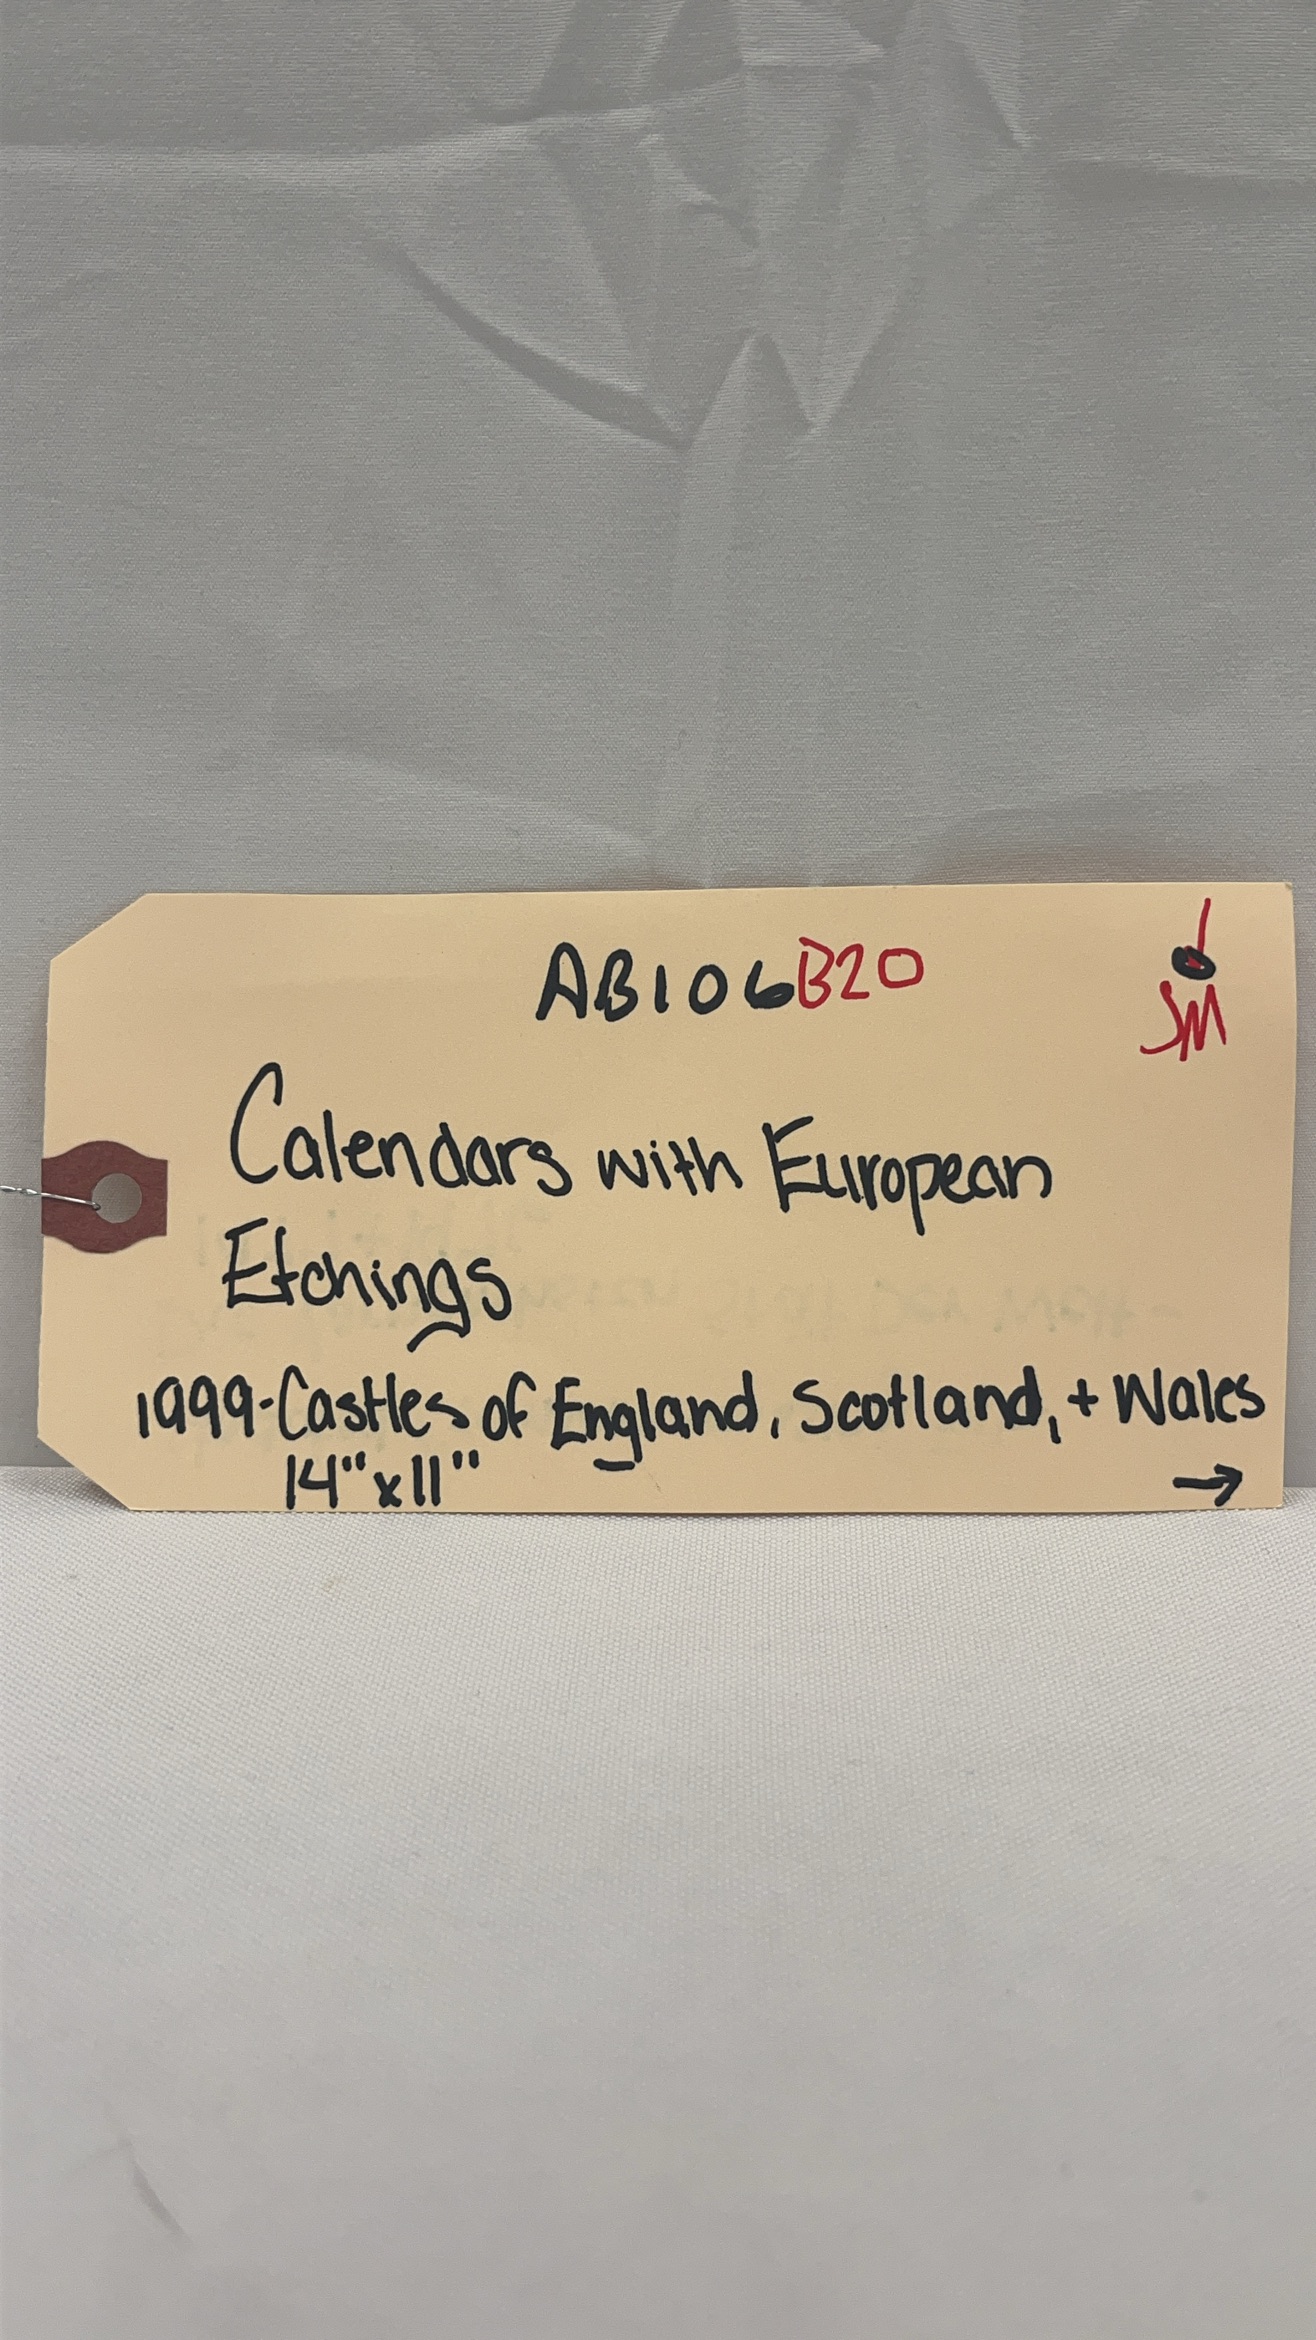 AB106B20
SM
Calendars with European
Etchings
1999-Castles of England, Scotland, + Wales
14"x11" →